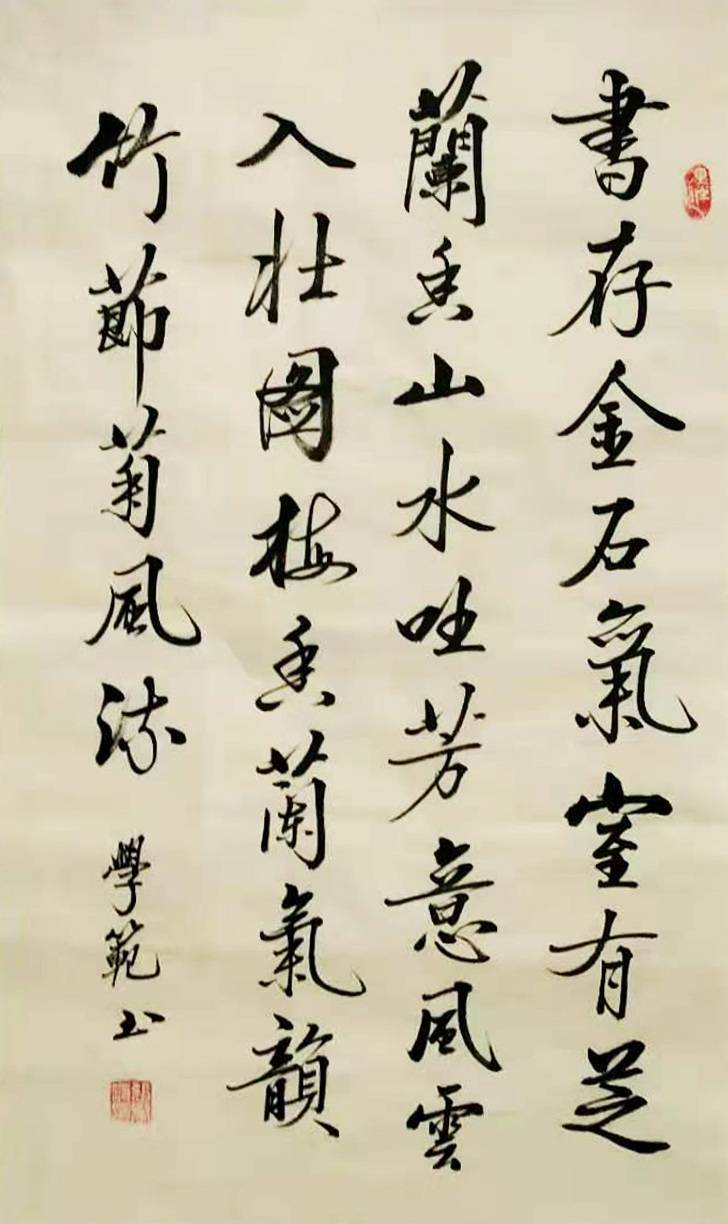 書存金石氣室有芝
蘭香山水吐芳意風雲
入壯圖梅香蘭氣韻
竹節菊風流
學範书